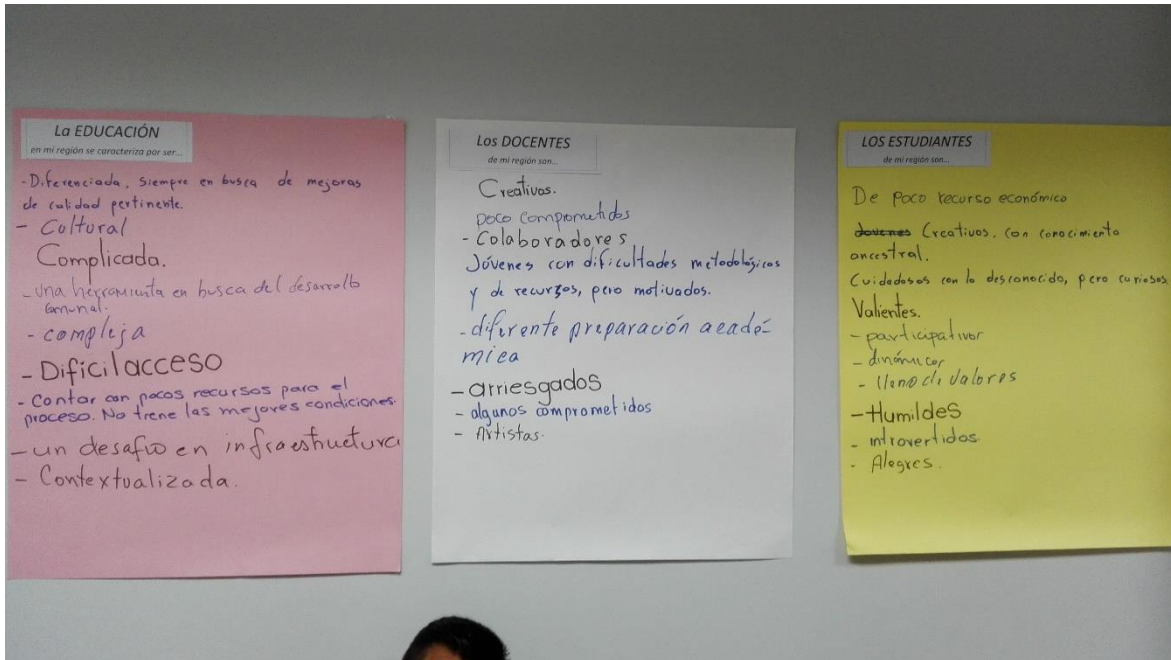 La EDUCACIÓN
en mi región se caracteriza por ser...
-Diferenciada, siempre en busca de mejoras
de calidad pertinente.
- Cultural
Complicada.
- una herramienta en busca del desarrollo
comunal.
- compleja
- Dificil acceso
- Contar con pocos recursos para el
proceso. No tiene las mejores condiciones.
- un desafio en infraestructura
- Contextualizada.
Los DOCENTES
de mi región son...
Creativos.
poco comprometidos
- Colaboradores
Jóvenes con dificultades metodológicas
y de recursos, pero motivados.
- diferente preparación acadé-
mica
- arriesgados
- algunos comprometidos
- Artistas.
LOS ESTUDIANTES
de mi región son...
De poco recurso económico
jovenes Creativos, con conocimiento
ancestral.
Cuidadosos con lo desconocido, pero curiosos
Valientes.
- participativos
- dinámicos
- lleno de valores
- Humildes
- introvertidos.
- Alegres.